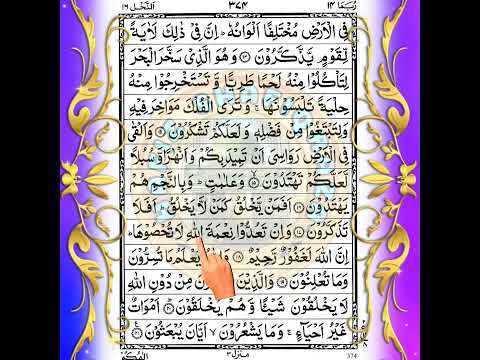 رُبَمَا ١٤
٣٧٤
اَلنَّحْل ١٦
فِي الْاَرْضِ مُخْتَلِفًا اَلْوَانُهٗ ؕ اِنَّ فِيْ ذٰلِكَ لَاٰيَةً
لِّقَوْمٍ يَّذَّكَّرُوْنَ ۝١٣ وَهُوَ الَّذِيْ سَخَّرَ الْبَحْرَ
لِتَاْكُلُوْا مِنْهُ لَحْمًا طَرِيًّا وَّ تَسْتَخْرِجُوْا مِنْهُ
حِلْيَةً تَلْبَسُوْنَهَا ۚ وَتَرَى الْفُلْكَ مَوَاخِرَ فِيْهِ
وَلِتَبْتَغُوْا مِنْ فَضْلِهٖ وَلَعَلَّكُمْ تَشْكُرُوْنَ ۝١٤ وَاَلْقٰى
فِي الْاَرْضِ رَوَاسِيَ اَنْ تَمِيْدَ بِكُمْ وَاَنْهٰرًا وَّسُبُلًا
لَّعَلَّكُمْ تَهْتَدُوْنَ ۝١٥ وَعَلٰمٰتٍ ؕ وَبِالنَّجْمِ هُمْ
يَهْتَدُوْنَ ۝١٦ اَفَمَنْ يَّخْلُقُ كَمَنْ لَّا يَخْلُقُ ؕ اَفَلَا
تَذَكَّرُوْنَ ۝١٧ وَاِنْ تَعُدُّوْا نِعْمَةَ اللّٰهِ لَا تُحْصُوْهَا ؕ
اِنَّ اللّٰهَ لَغَفُوْرٌ رَّحِيْمٌ ۝١٨ يَعْلَمُ مَا تُسِرُّوْنَ
وَمَا تُعْلِنُوْنَ ۝١٩ وَالَّذِيْنَ مِنْ دُوْنِ اللّٰهِ
لَا يَخْلُقُوْنَ شَيْئًا وَّ هُمْ يُخْلَقُوْنَ ۝٢٠ اَمْوَاتٌ
غَيْرُ اَحْيَآءٍ ۚ وَمَا يَشْعُرُوْنَ ۙ اَيَّانَ يُبْعَثُوْنَ ۝٢١
مَنْزِل ٣
374